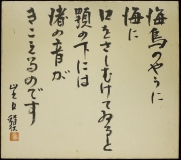 海鳥のやうに
海に
口をさしむけてみると
顎の下には
渚の音が
きこえるのです